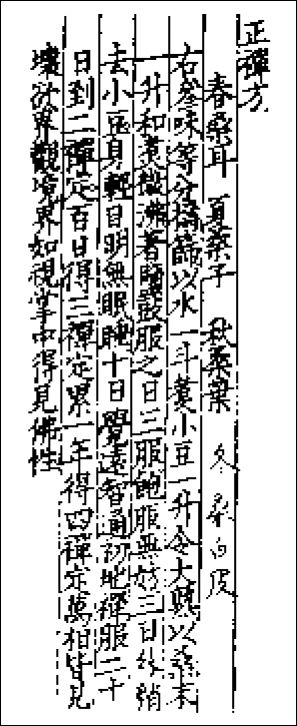 正禪方
春桑耳 夏桑子 秋桑葉 冬桑白皮
右參味等分擣篩以水一斗煮小豆一升令大熟以桑末
一升和煮微沸著鹽豉服之日三服飽服無妨三日外稍
去小豆身輕目明無眠睡十日覺遠智通初地禪服二十
日到二禪定百日得三禪定累一年得四禪定萬相皆見
壞欲界觀境界如視掌中得見佛性